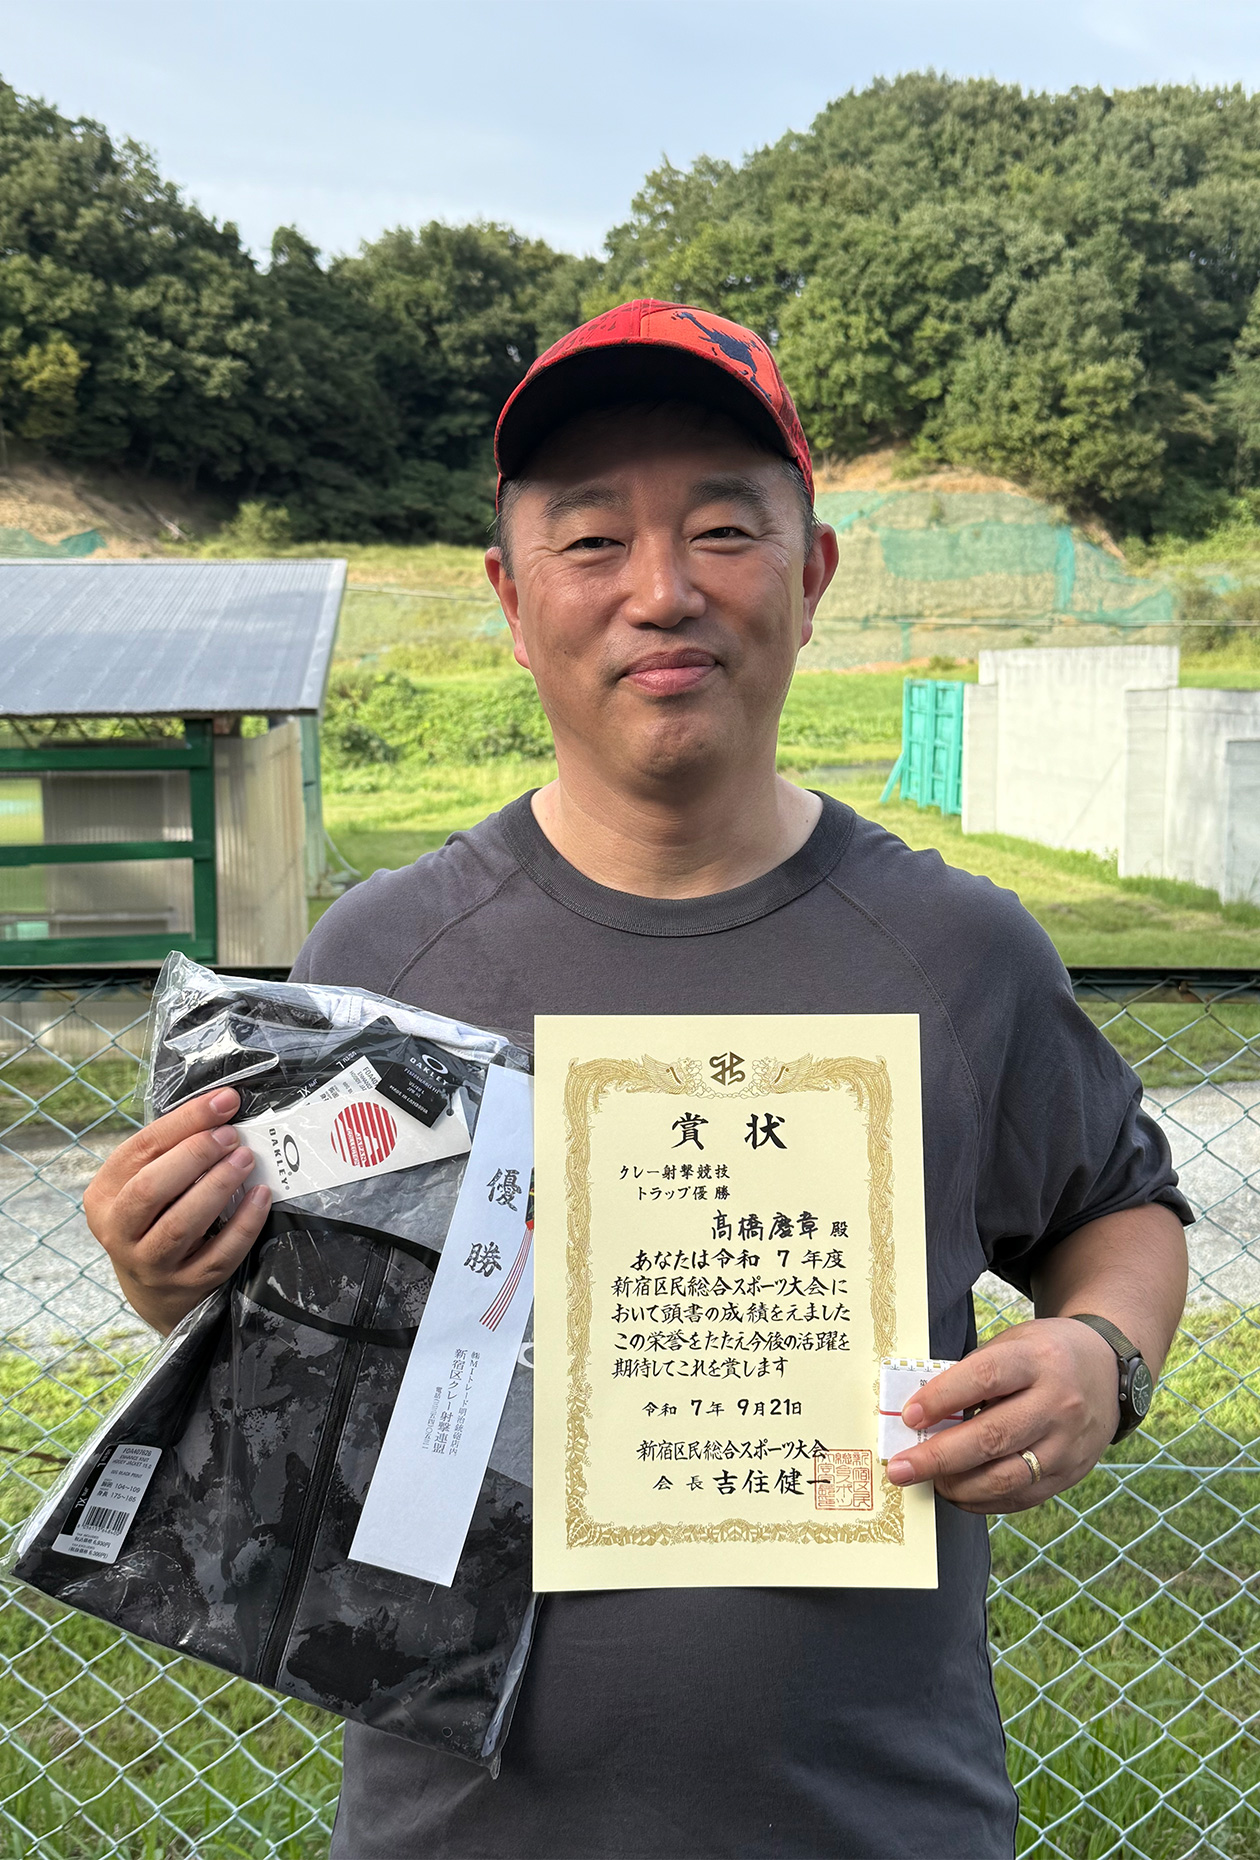 賞状
クレー射撃競技
トラップ優勝
髙橋慶章 殿
あなたは令和 7 年度
新宿区民総合スポーツ大会に
おいて頭書の成績をえました
この栄誉をたたえ今後の活躍を
期待してこれを賞します
令和 7年 9月21日
新宿区民総合スポーツ大会
会長 吉住健一
優勝
㈱MIトレード明治銃砲店内
新宿区クレー射撃連盟
OAKLEY
OAKLEY
FOA407626
ENHANCE KNIT
104~109
175~185
XL